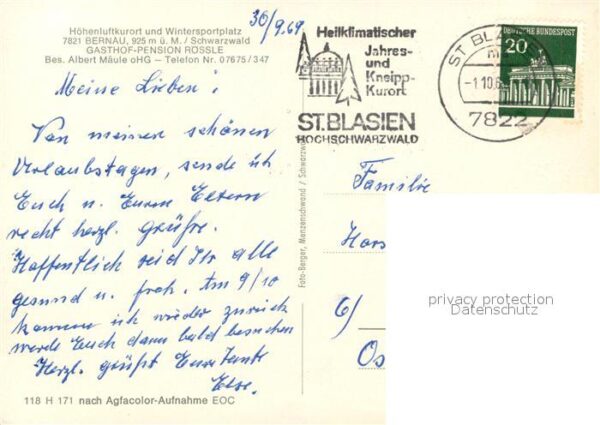 Höhenluftkurort und Wintersportplatz
7821 BERNAU, 925 m ü. M. / Schwarzwald
GASTHOF-PENSION RÖSSLE
Bes. Albert Mäule oHG — Telefon Nr. 07675/347
30/9.69
Meine Lieben!
Von meinen schönen
Urlaubstagen, sende ich
Euch u. Euren Eltern
recht herzl. Grüße.
Hoffentlich seid Ihr alle
gesund u. froh. Am 9/10
komme ich wieder zurück
werde Euch dann bald besuchen
Herzl. grüßt Eure Tante
Else.
118 H 171 nach Agfacolor-Aufnahme EOC
Foto-Berger, Menzenschwand / Schwarzw
Heilklimatischer
Jahres-
und
Kneipp-
Kurort
ST. BLASIEN
HOCHSCHWARZWALD
ST BLA
-1.10.6
7822
DEUTSCHE BUNDESPOST
20
Familie
Hors
6/
Os
privacy protection
Datenschutz